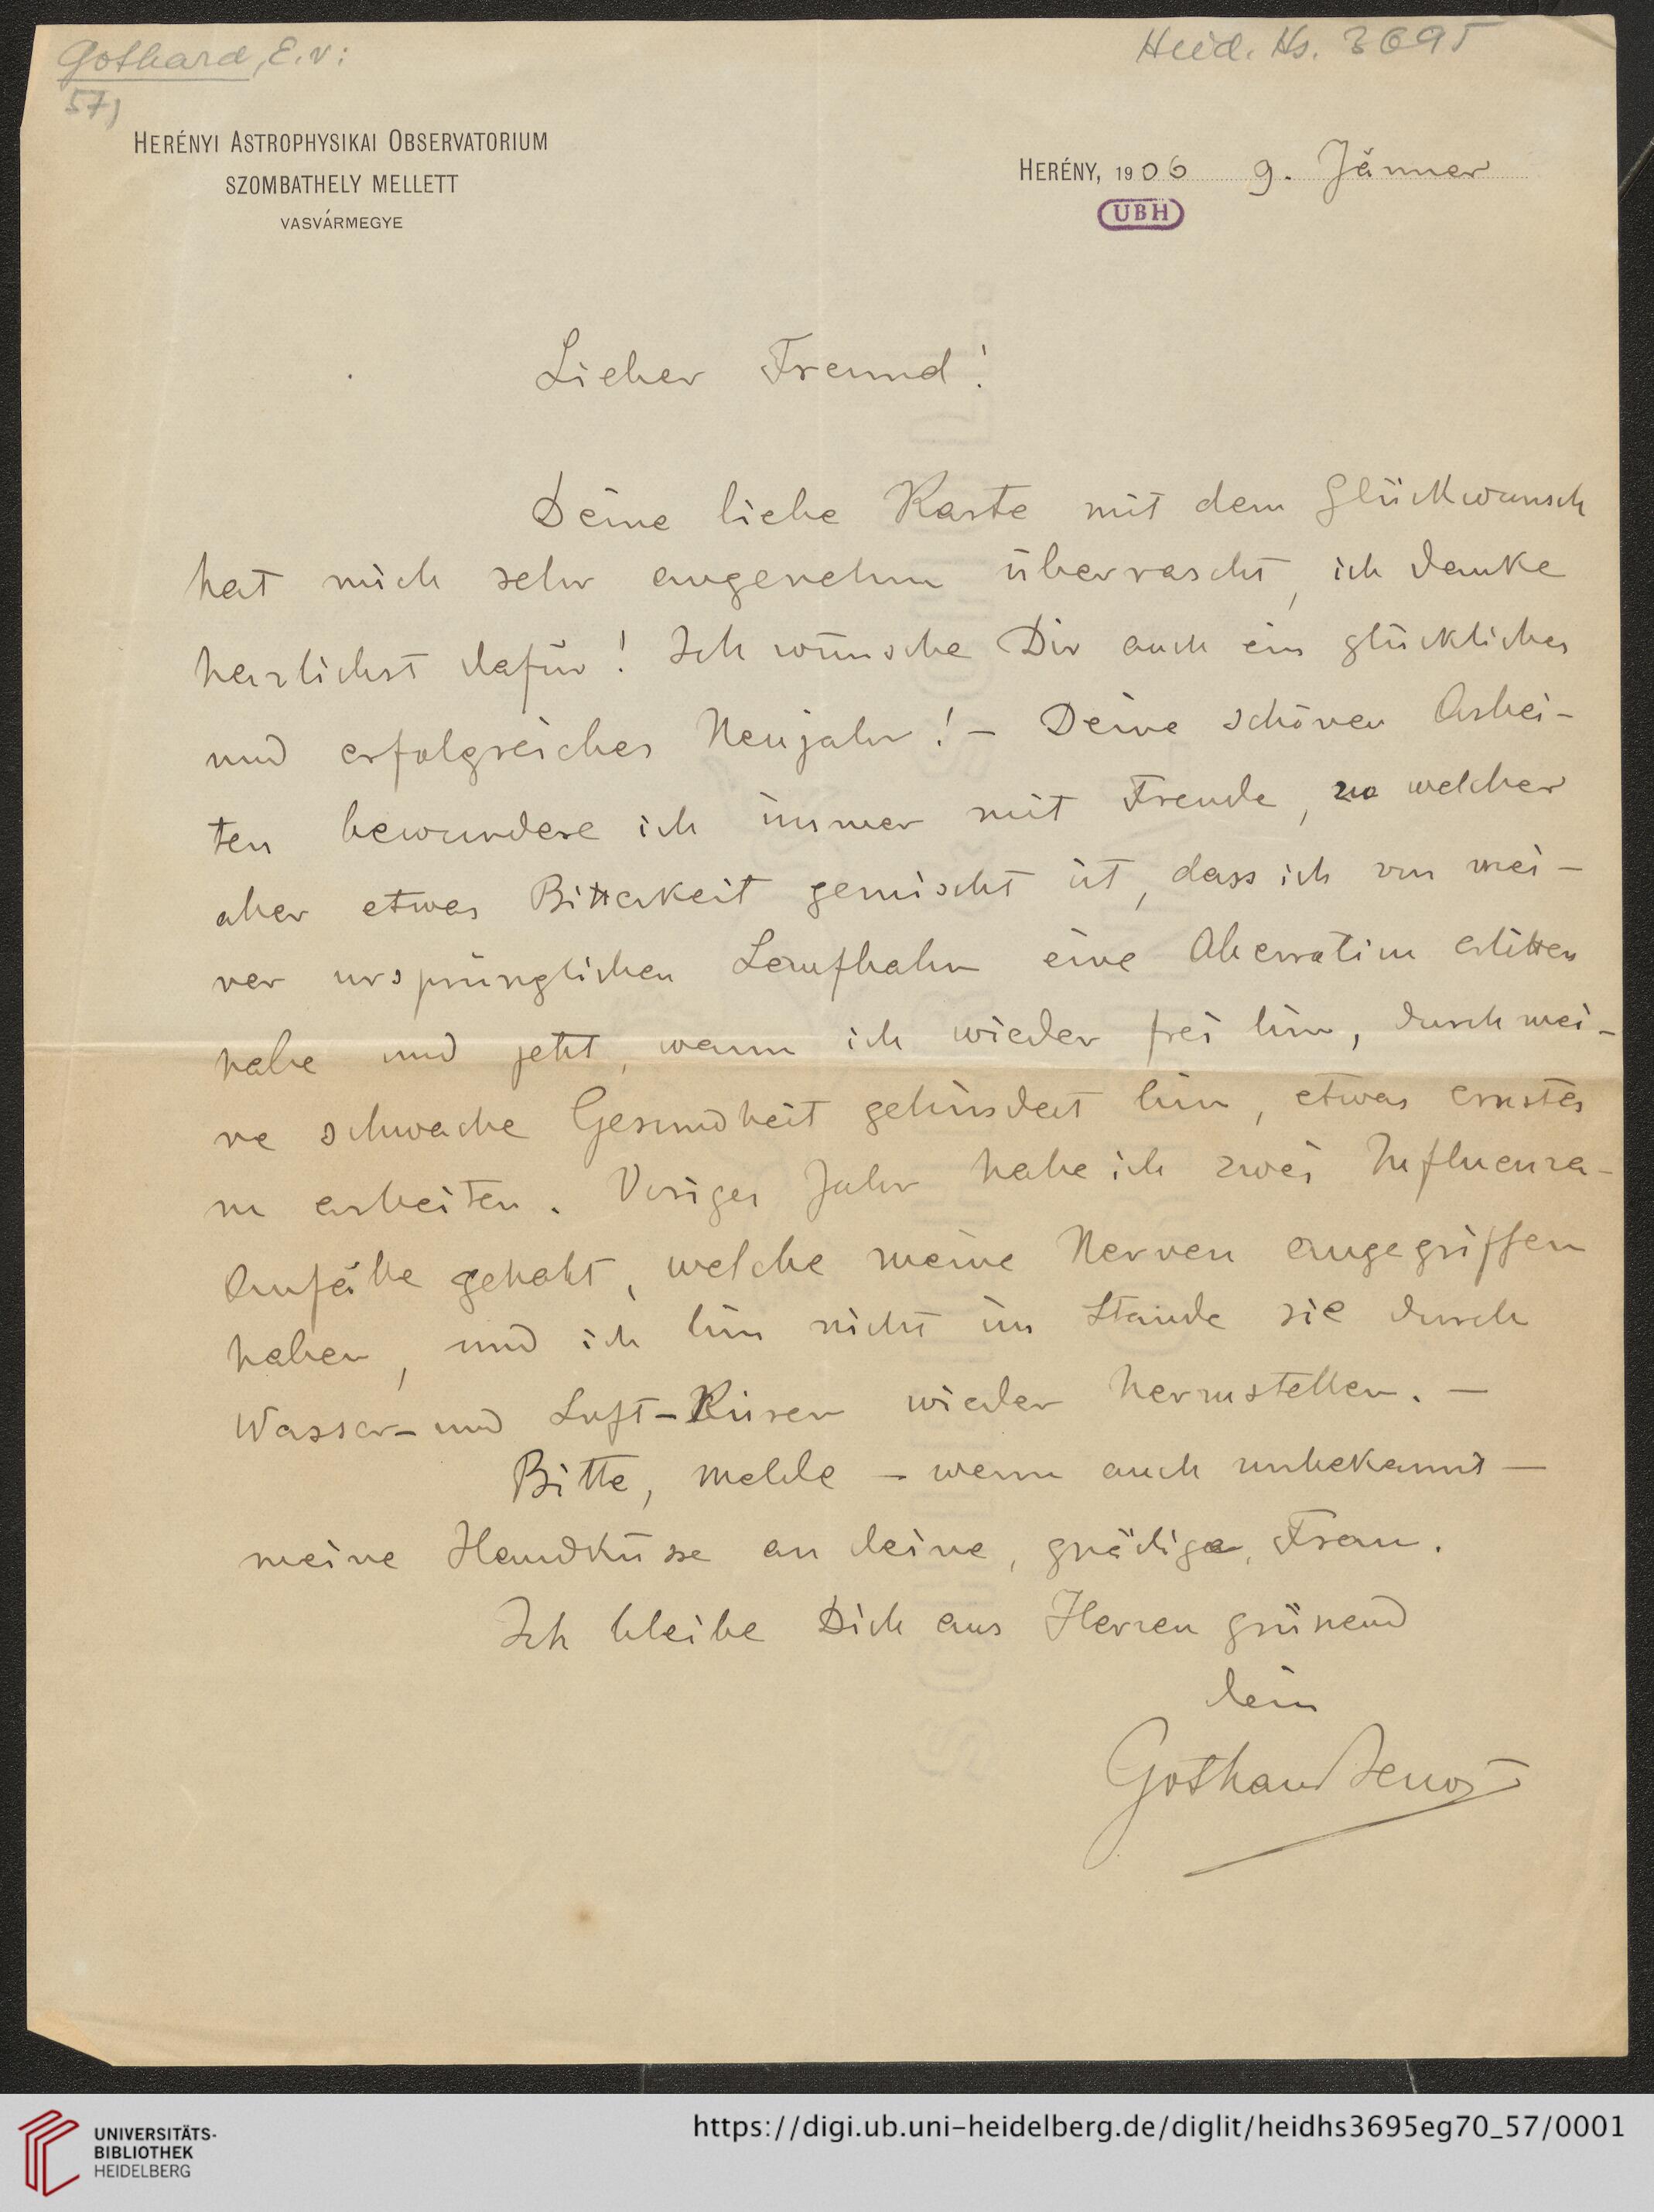 Gothard, E. v:
57)
Heid. Hs. 3695
HERÉNYI ASTROPHYSIKAI OBSERVATORIUM
SZOMBATHELY MELLETT
VASVÁRMEGYE
HERÉNY, 1906 9. Jänner
UBH
Lieber Freund!
Deine liebe Karte mit dem Glückwunsch
hat mich sehr angenehm überrascht, ich danke
herzlichst dafür! Ich wünsche Dir auch ein glückliches
und erfolgreiches Neujahr! – Deine schönen Arbei-
ten bewundere ich immer mit Freude, zu welcher
aber etwas Bitterkeit gemischt ist, dass ich von mei-
ner ursprünglichen Laufbahn eine Aberration erlitten
habe und jetzt, wann ich wieder frei bin, durch mei-
ne schwache Gesundheit gehindert bin, etwas ernstes
zu arbeiten. Voriges Jahr habe ich zwei Influenza-
Anfälle gehabt, welche meine Nerven angegriffen
haben, und ich bin nicht im Stande sie durch
Wasser- und Luft-Kuren wieder herzustellen. –
Bitte, melde – wenn auch unbekannt –
meine Handküsse an deine, gnädige, Frau.
Ich bleibe Dich aus Herzen grüssend
dein
Gothard Jenő
UNIVERSITÄTS-
BIBLIOTHEK
HEIDELBERG
https://digi.ub.uni-heidelberg.de/diglit/heidhs3695eg70_57/0001